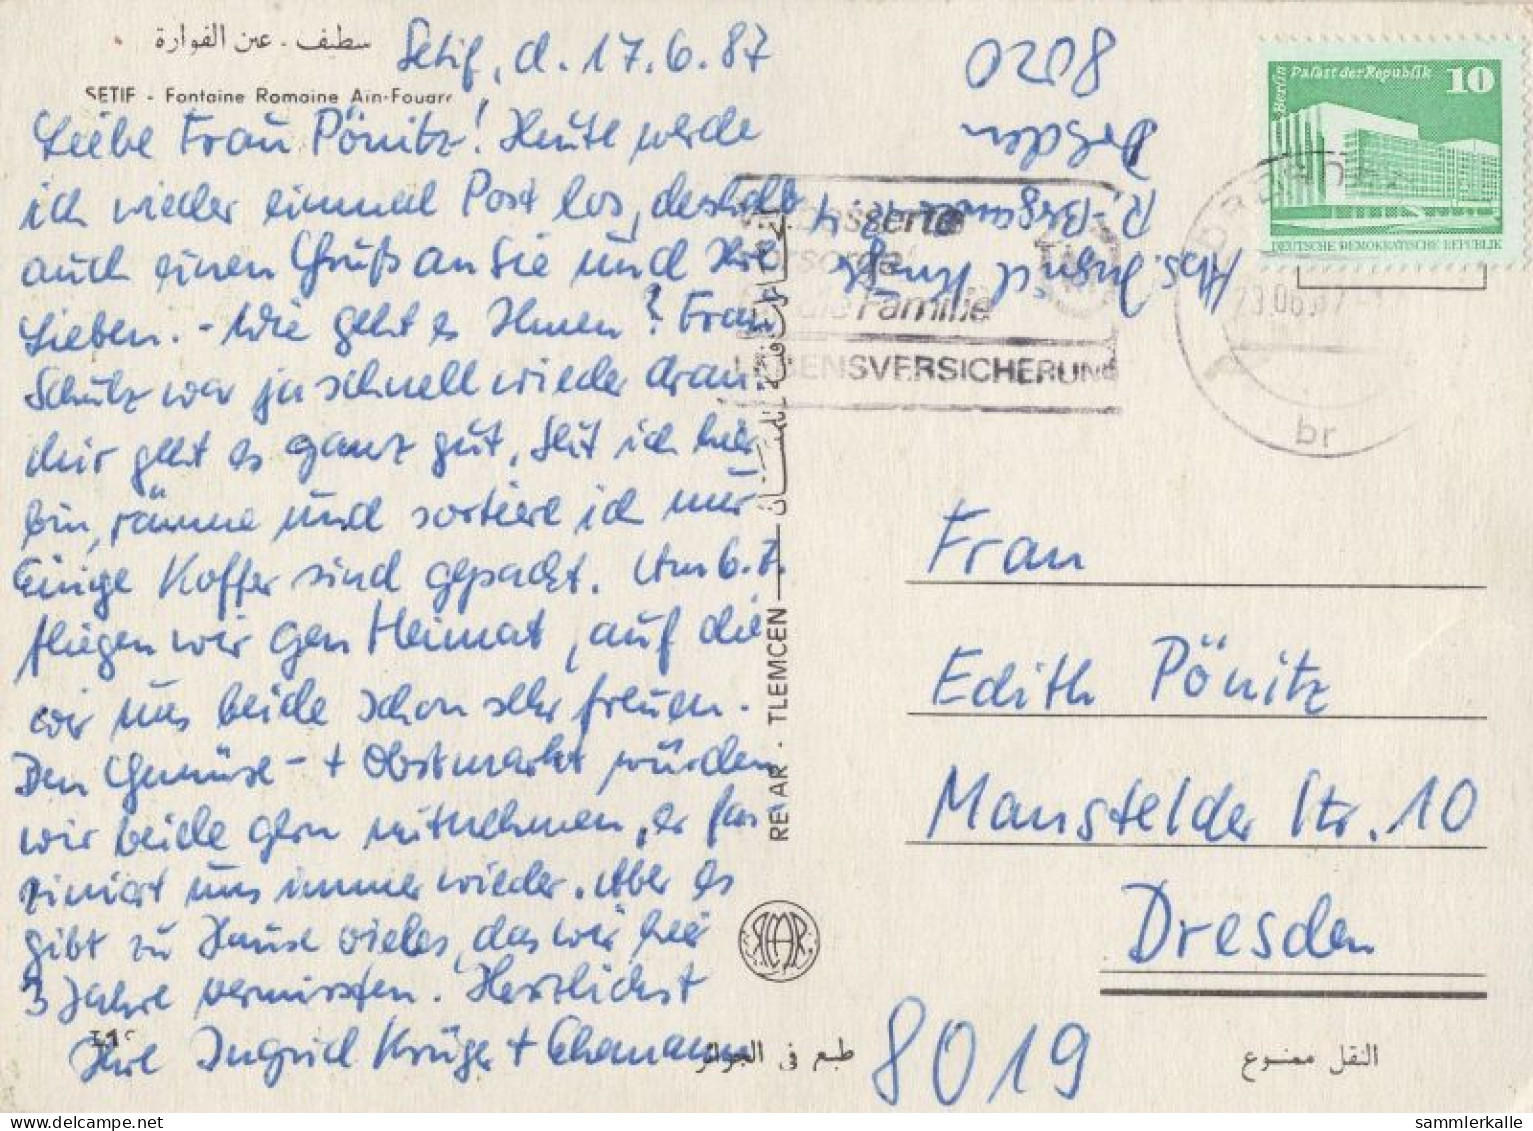 سطيف - عين الفوارة
SETIF - Fontaine Romaine Ain-Fouarr
Setif, d. 17.6.87
Liebe Frau Pönitz! Heute werde
ich wieder einmal Post los, deshalb
auch einen Gruß an Sie und Ihre
Lieben. - Wie geht es Ihnen? Frau
Schulz war ja schnell wieder dran.
Mir geht es ganz gut. Seit ich hier
bin, räume und sortiere ich nur
Einige Koffer sind gepackt. Am 6.7.
fliegen wir gen Heimat, auf die
wir uns beide schon sehr freuen.
Den Gemüse- + Obstmarkt würden
wir beide gern mitnehmen, er fas
ziniert uns immer wieder. Aber es
gibt zu Hause vieles, das wir hier
3 Jahre vermissten. Herzlichst
Ihre Ingrid Krüger + Ehemann
REVAR - TLEMCEN
طبع في الجزائر
النقل ممنوع
Abs. Ingrid Krüger
Dresden
8020
Berlin Palast der Republik 10
DEUTSCHE DEMOKRATISCHE REPUBLIK
die Familie
LEBENSVERSICHERUNG
DRESDEN
br
Frau
Edith Pönitz
Mansfelder Str. 10
Dresden
8019
sammlerkalle